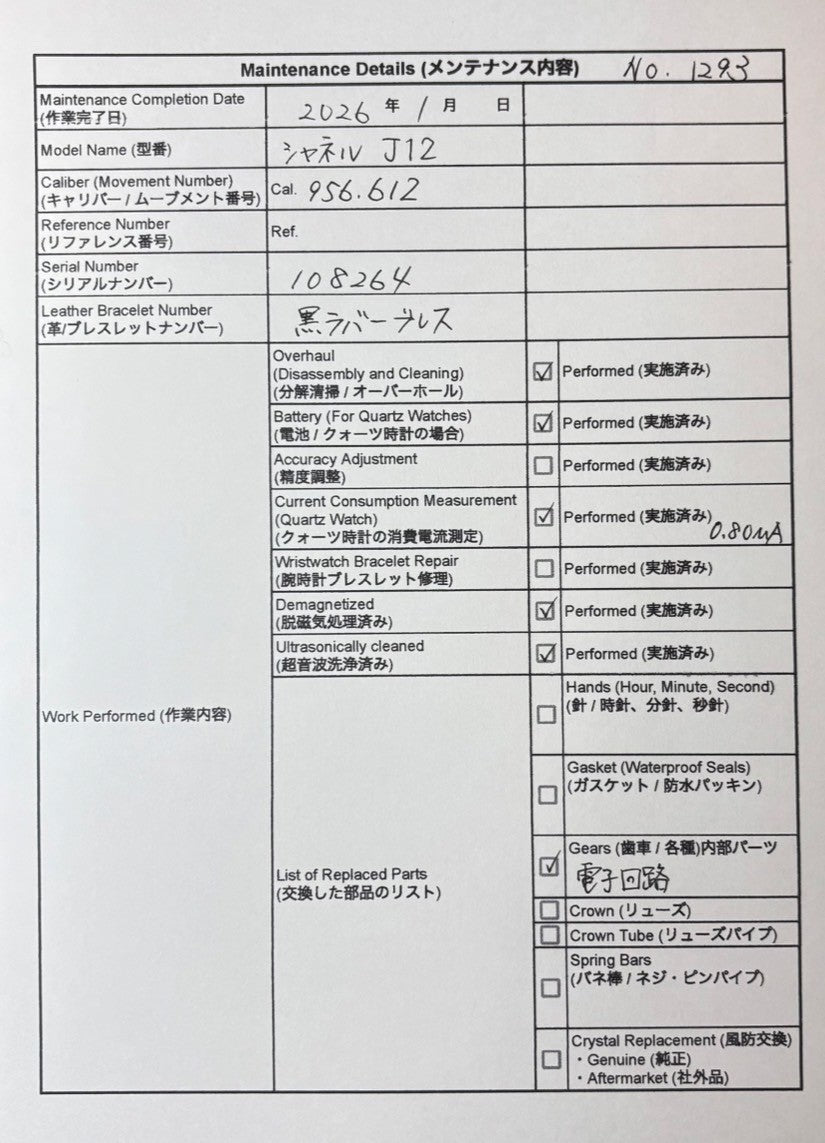 Maintenance Details (メンテナンス内容) No. 1293
Maintenance Completion Date
(作業完了日)
2026 年 1 月 日
Model Name (型番)
シャネル J12
Caliber (Movement Number)
(キャリバー / ムーブメント番号)
Cal. 956.612
Reference Number
(リファレンス番号)
Ref.
Serial Number
(シリアルナンバー)
108264
Leather Bracelet Number
(革/ブレスレットナンバー)
黒ラバーブレス
Work Performed (作業内容)
Overhaul
(Disassembly and Cleaning)
(分解清掃 / オーバーホール)
☑ Performed (実施済み)
Battery (For Quartz Watches)
(電池 / クォーツ時計の場合)
☑ Performed (実施済み)
Accuracy Adjustment
(精度調整)
☐ Performed (実施済み)
Current Consumption Measurement
(Quartz Watch)
(クォーツ時計の消費電流測定)
☑ Performed (実施済み)
0.80μA
Wristwatch Bracelet Repair
(腕時計ブレスレット修理)
☐ Performed (実施済み)
Demagnetized
(脱磁気処理済み)
☑ Performed (実施済み)
Ultrasonically cleaned
(超音波洗浄済み)
☑ Performed (実施済み)
List of Replaced Parts
(交換した部品のリスト)
☐ Hands (Hour, Minute, Second)
(針 / 時針、分針、秒針)
☐ Gasket (Waterproof Seals)
(ガスケット / 防水パッキン)
☑ Gears (歯車 / 各種)内部パーツ
電子回路
☐ Crown (リューズ)
☐ Crown Tube (リューズパイプ)
☐ Spring Bars
(バネ棒 / ネジ・ピンパイプ)
☐ Crystal Replacement (風防交換)
・Genuine (純正)
・Aftermarket (社外品)